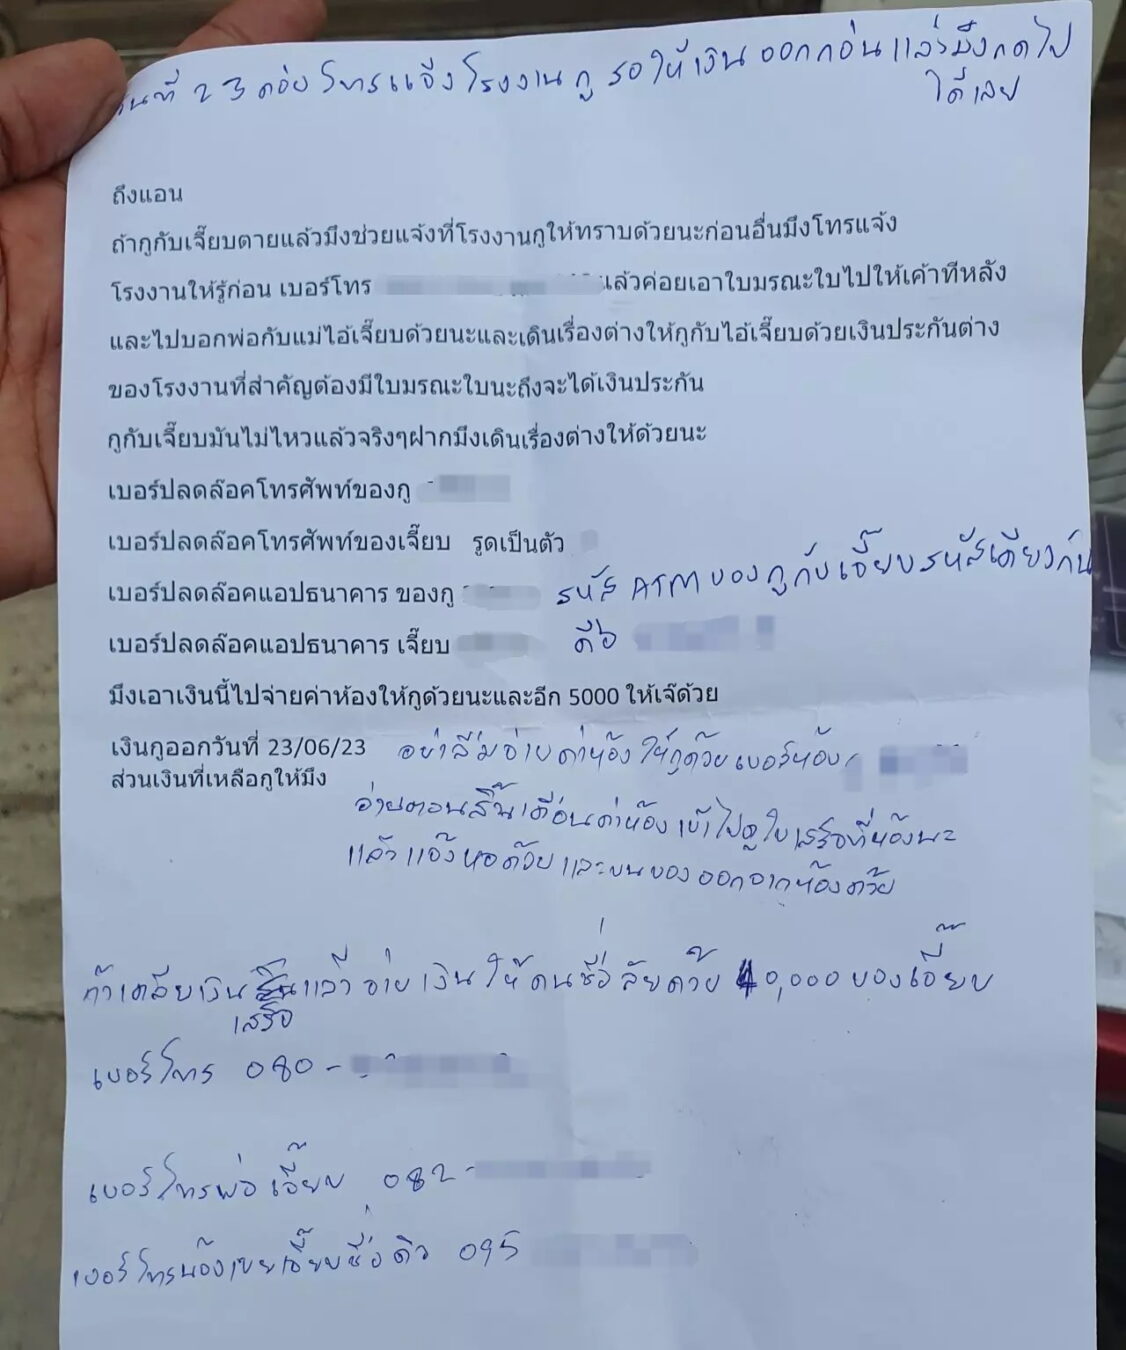 วันที่ 23 ค่อยโทรแจ้งโรงงานกู รอให้เงินออกก่อนแล้วมึงกดไป
ได้เลย
ถึงแอน
ถ้ากูกับเจี๊ยบตายแล้วมึงช่วยแจ้งที่โรงงานกูให้ทราบด้วยนะก่อนอื่นมึงโทรแจ้ง
โรงงานให้รู้ก่อน เบอร์โทร แล้วค่อยเอาใบมรณะใบไปให้เค้าทีหลัง
และไปบอกพ่อกับแม่ไอ้เจี๊ยบด้วยนะและเดินเรื่องต่างให้กูกับไอ้เจี๊ยบด้วยเงินประกันต่าง
ของโรงงานที่สำคัญต้องมีใบมรณะใบนะถึงจะได้เงินประกัน
กูกับเจี๊ยบมันไม่ไหวแล้วจริงๆฝากมึงเดินเรื่องต่างให้ด้วยนะ
เบอร์ปลดล๊อคโทรศัพท์ของกู
เบอร์ปลดล๊อคโทรศัพท์ของเจี๊ยบ รูดเป็นตัว
เบอร์ปลดล๊อคแอปธนาคาร ของกู รหัส ATM ของกูกับเจี๊ยบรหัสเดียวกัน
เบอร์ปลดล๊อคแอปธนาคาร เจี๊ยบ คือ
มึงเอาเงินนี้ไปจ่ายค่าห้องให้กูด้วยนะและอีก 5000 ให้เจ๊ด้วย
เงินกูออกวันที่ 23/06/23 อย่าลืมจ่ายค่าห้องให้กูด้วยเบอร์ห้อง
ส่วนเงินที่เหลือกูให้มึง
จ่ายตอนสิ้นเดือนค่าห้องเข้าไปดูใบเสร็จที่ห้องนะ
แล้วแจ้งหอด้วยและขนของออกจากห้องด้วย
ถ้าเคลียเงินแล้วจ่ายเงินให้คนชื่อ ลัยด้วย 40,000 ของเจี๊ยบ
เสร็จ
เบอร์โทร 080-
เบอร์โทรพ่อเจี๊ยบ 082-
เบอร์โทรน้องเขยเจี๊ยบชื่อ ดิว 095